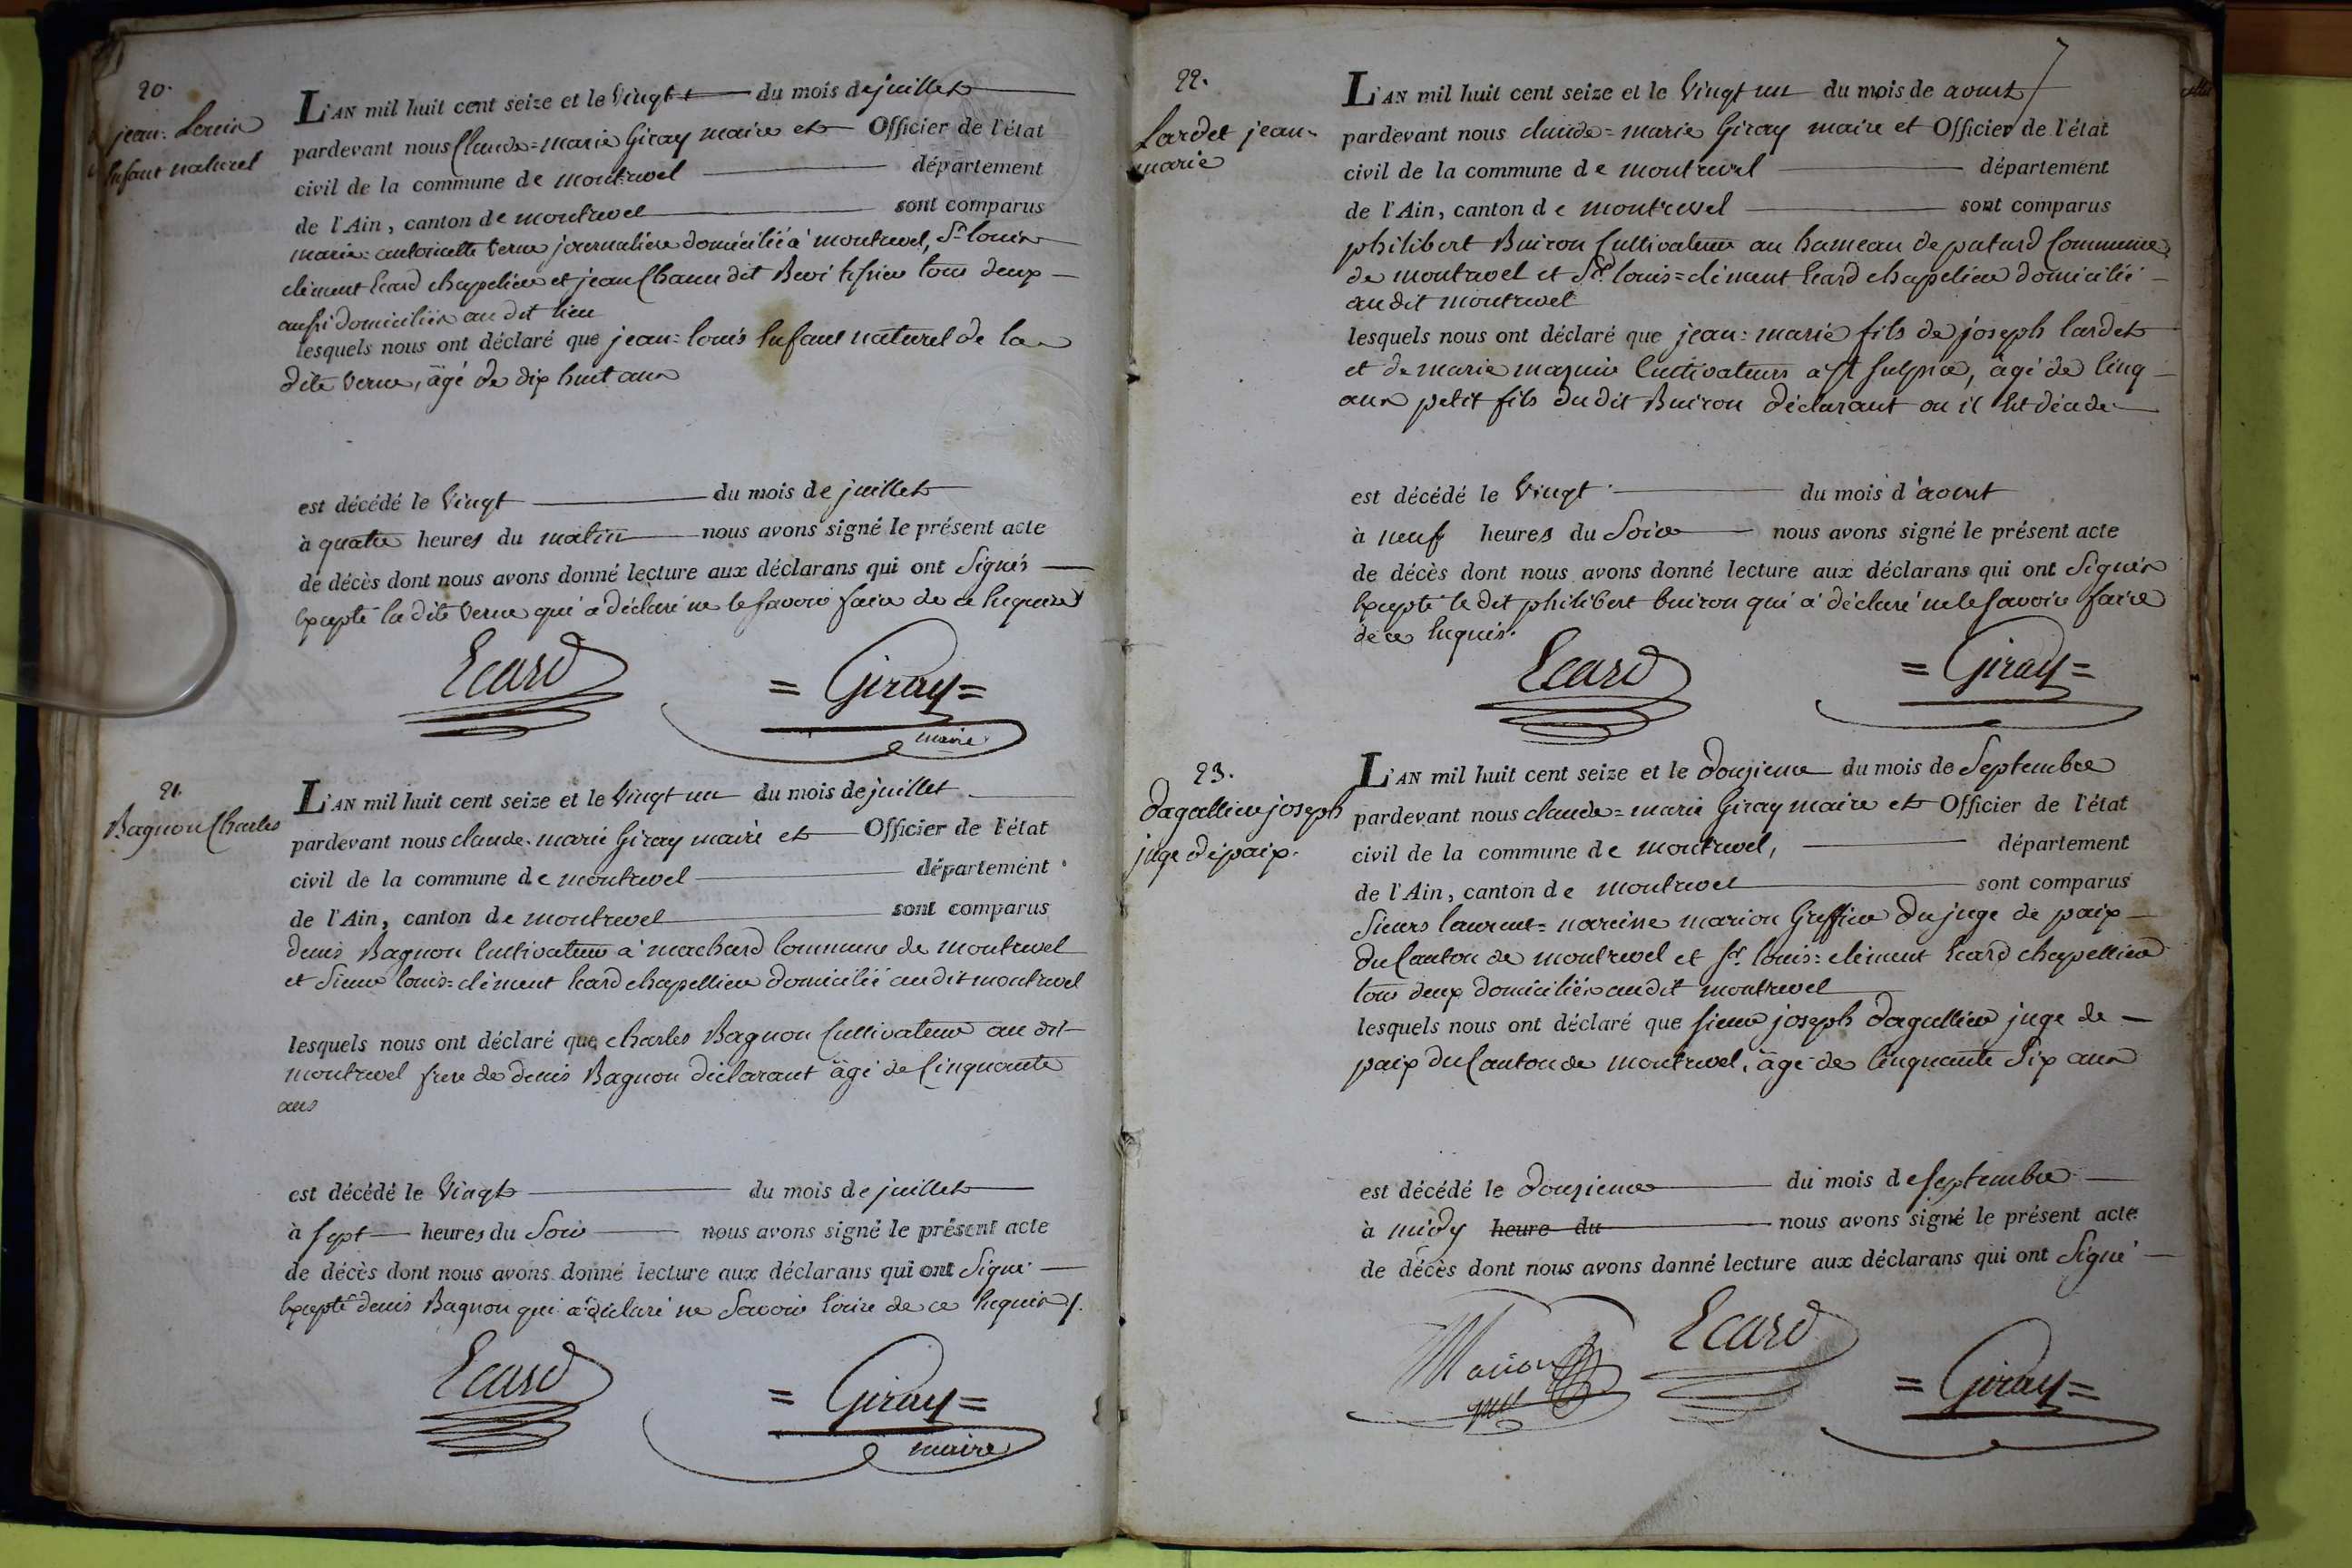 20.
jean-Louis
Enfant naturel
L'AN mil huit cent seize et le vingt du mois de juillet
pardevant nous Claude=marie Giray maire et Officier de l'état
civil de la commune de montrevel département
de l'Ain, canton de montrevel sont comparus
marie=antoinette verne journalière domiciliée à montrevel, Sr. louis
clément Ecard chapelier et jean Chanu dit Bevi tous deux
aussi domiciliés au dit lieu
lesquels nous ont déclaré que jean=louis Enfant naturel de la
dite verne, âgé de dix huit ans
est décédé le vingt du mois de juillet
à quatre heures du matin nous avons signé le présent acte
de décès dont nous avons donné lecture aux déclarans qui ont Signés
Excepté la dite verne qui a déclaré ne le savoir faire de ce Enquise
Ecard
= Giray =
maire
21.
Bagnon Charles
L'AN mil huit cent seize et le vingt un du mois de juillet
pardevant nous claude-marie Giray maire et Officier de l'état
civil de la commune de montrevel département
de l'Ain, canton de montrevel sont comparus
denis Bagnon Cultivateur à machard commune de montrevel
et Sieur louis=clément Ecard chapellier domicilié au dit montrevel
lesquels nous ont déclaré que charles Bagnon Cultivateur au dit
montrevel frere de denis Bagnon déclarant âgé de Cinquante
ans
est décédé le vingt du mois de juillet
à sept heures du Soir nous avons signé le présent acte
de décès dont nous avons donné lecture aux déclarans qui ont Signé
Excepté denis Bagnon qui a déclaré ne Savoir Ecrire de ce Enquis
Ecard
= Giray =
maire
7
22.
Lardet jean-
marie
L'AN mil huit cent seize et le vingt un du mois de aoust
pardevant nous claude=marie Giray maire et Officier de l'état
civil de la commune de montrevel département
de l'Ain, canton de montrevel sont comparus
philibert Buiron Cultivateur au hameau de patard Commune
de montrevel et Sr. louis=clément Ecard chapelier domicilié
au dit montrevel
lesquels nous ont déclaré que jean=marie fils de joseph lardet
et de marie Cultivateurs a st Sulpice, âgé de Cinq
ans petit fils du dit Buiron déclarant ou il Est décedé
est décédé le vingt du mois d'aoust
à neuf heures du Soir nous avons signé le présent acte
de décès dont nous avons donné lecture aux déclarans qui ont Signés
Excepté le dit philibert buiron qui a déclaré ne le savoir faire
de ce Enquis.
Ecard
= Giray =
23.
dagallier joseph
juge de paix.
L'AN mil huit cent seize et le douzieme du mois de Septembre
pardevant nous claude=marie Giray maire et Officier de l'état
civil de la commune de montrevel, département
de l'Ain, canton de montrevel sont comparus
Sieurs laurent=narcisse marion Greffier du juge de paix
du Canton de montrevel et Sr. louis=clément Ecard chapellier
tous deux domiciliés au dit montrevel
lesquels nous ont déclaré que Sieur joseph dagallier juge de
paix du Canton de montrevel, âgé de Cinquante Six ans
est décédé le douzieme du mois de Septembre
à midy heure du nous avons signé le présent acte
de décès dont nous avons donné lecture aux déclarans qui ont Signé
Marion
Ecard
= Giray =